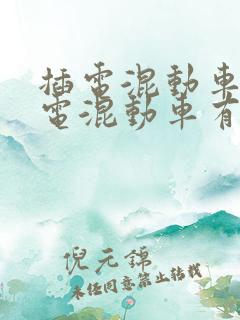 插電混動車
電混動車有
倪元錦
未經同意禁止轉載